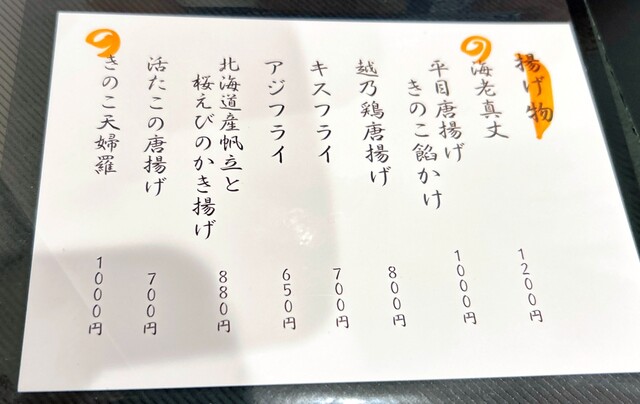 揚げ物
の海老真丈
1200円
平目唐揚げ
きのこ餡かけ
1000円
越乃鶏唐揚げ
800円
キスフライ
700円
アジフライ
650円
北海道産帆立と
桜えびのかき揚げ
880円
活たこの唐揚げ
700円
のきのこ天婦羅
1000円